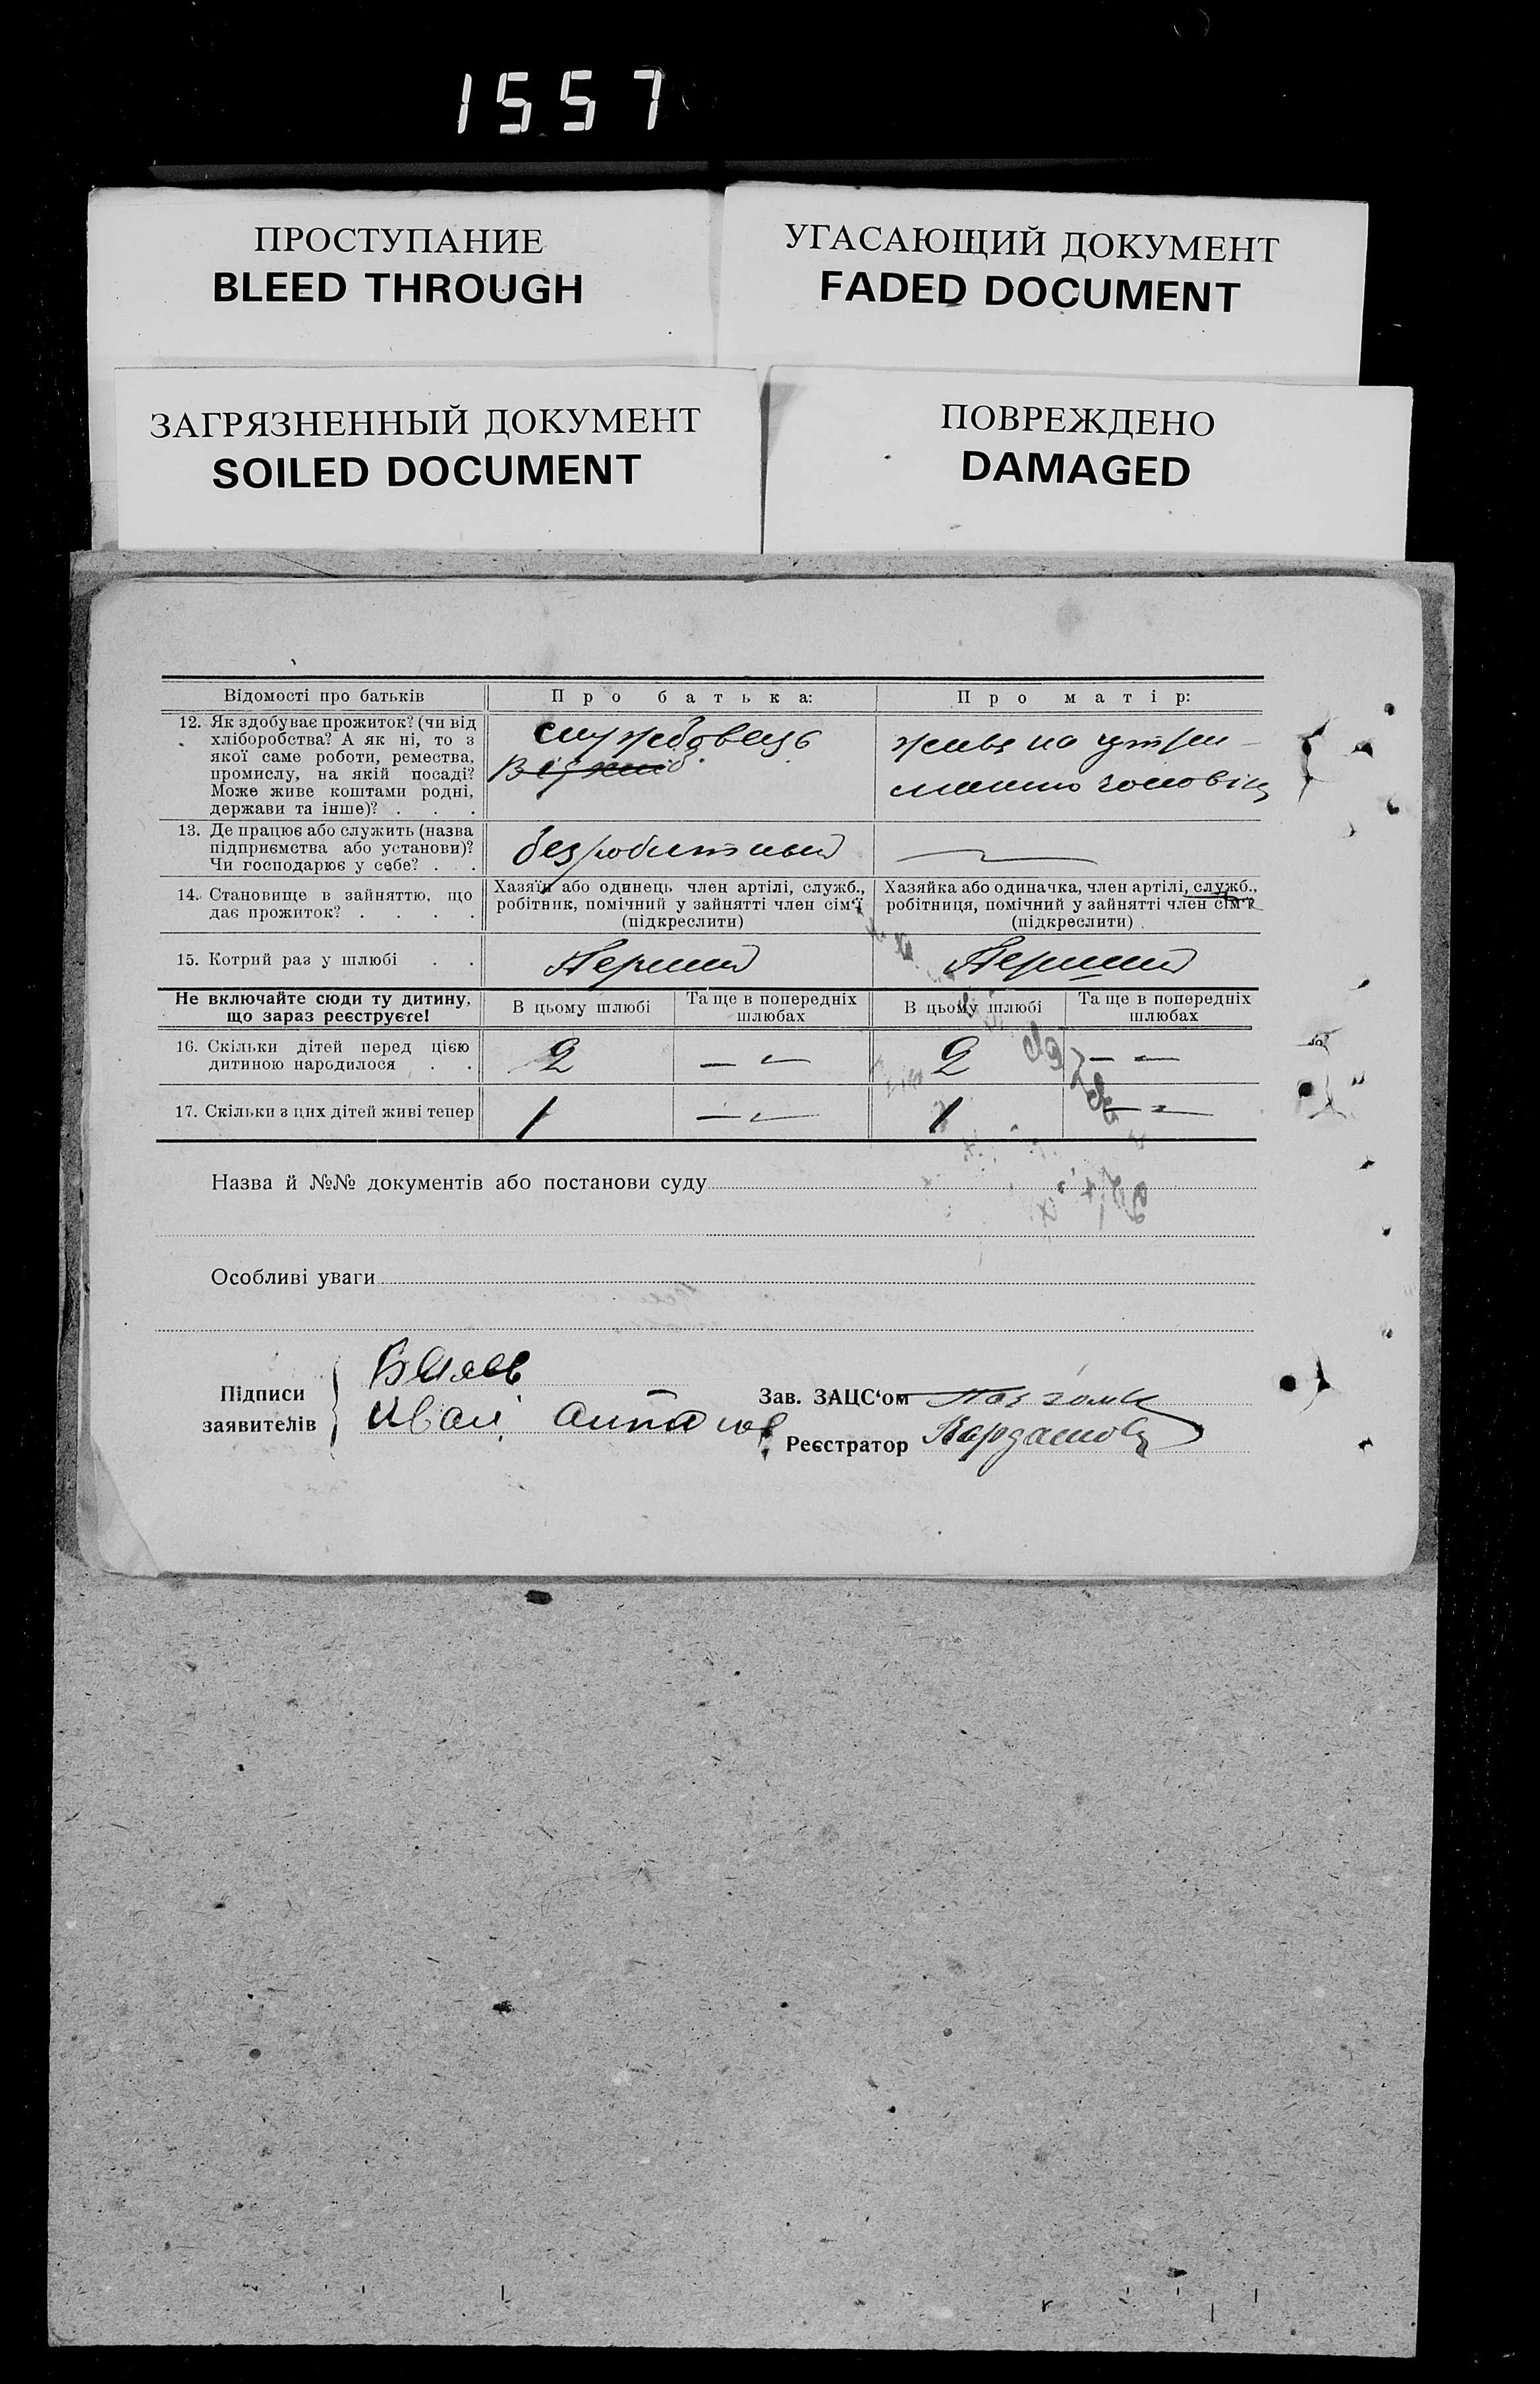 1557
ПРОСТУПАНИЕ
BLEED THROUGH
УГАСАЮЩИЙ ДОКУМЕНТ
FADED DOCUMENT
ЗАГРЯЗНЕННЫЙ ДОКУМЕНТ
SOILED DOCUMENT
ПОВРЕЖДЕНО
DAMAGED
Відомості про батьків
Про батька:
Про матір:
12. Як здобуває прожиток? (чи від
хліборобства? А як ні, то з
якої саме роботи, ремества,
промислу, на якій посаді?
Може живе коштами родні,
держави та інше)? . . .
службовець
живе на утри-
манню чоловіка
13. Де працює або служить (назва
підприємства або установи)?
Чи господарює у себе? . . .
безробітний
—
14. Становище в зайняттю, що
дає прожиток? . . . .
Хазяїн або одинець член артілі, служб.,
робітник, помічний у зайнятті член сім'ї
(підкреслити)
Хазяйка або одиначка, член артілі, служб.,
робітниця, помічний у зайнятті член сім'ї
(підкреслити)
15. Котрий раз у шлюбі . .
Перший
Перший
Не включайте сюди ту дитину,
що зараз реєструєте!
В цьому шлюбі
Та ще в попередніх
шлюбах
В цьому шлюбі
Та ще в попередніх
шлюбах
16. Скільки дітей перед цією
дитиною народилося . .
2
— —
2
— —
17. Скільки з цих дітей живі тепер
1
— —
1
— —
Назва й №№ документів або постанови суду
Особливі уваги
Підписи
заявителів
Зав. ЗАЦС'ом
Реєстратор